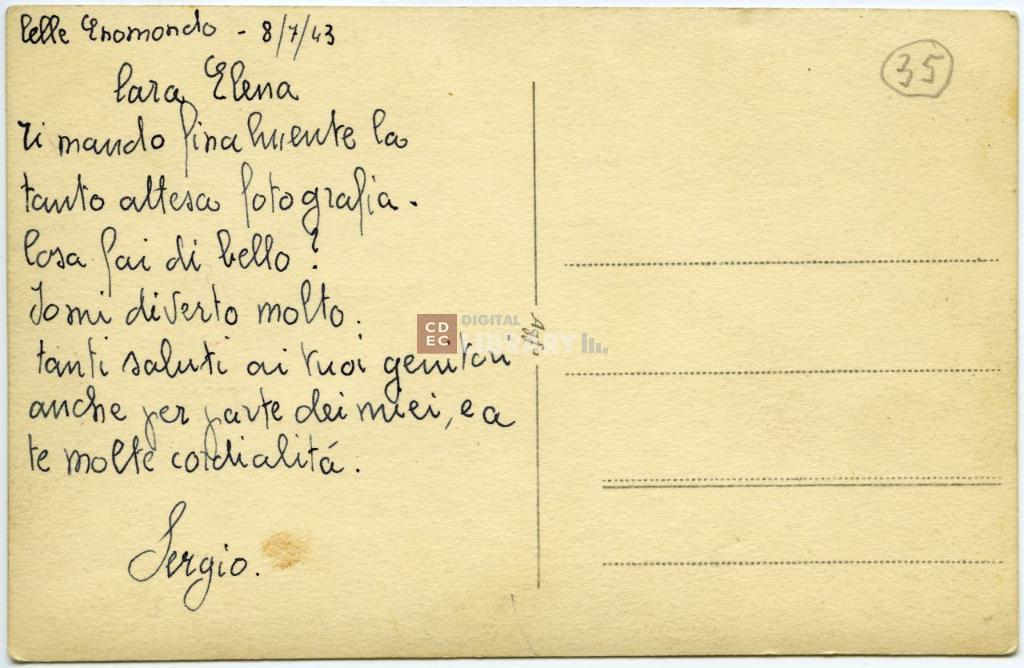 Celle Enomondo - 8/7/43
35
Cara Elena
ti mando finalmente la
tanto attesa fotografia.
Cosa fai di bello?
Io mi diverto molto.
tanti saluti ai tuoi genitori
anche per parte dei miei, e a
te molte cordialitá.
Sergio.
Agfa
CD
EC
DIGITAL
LIBRARY